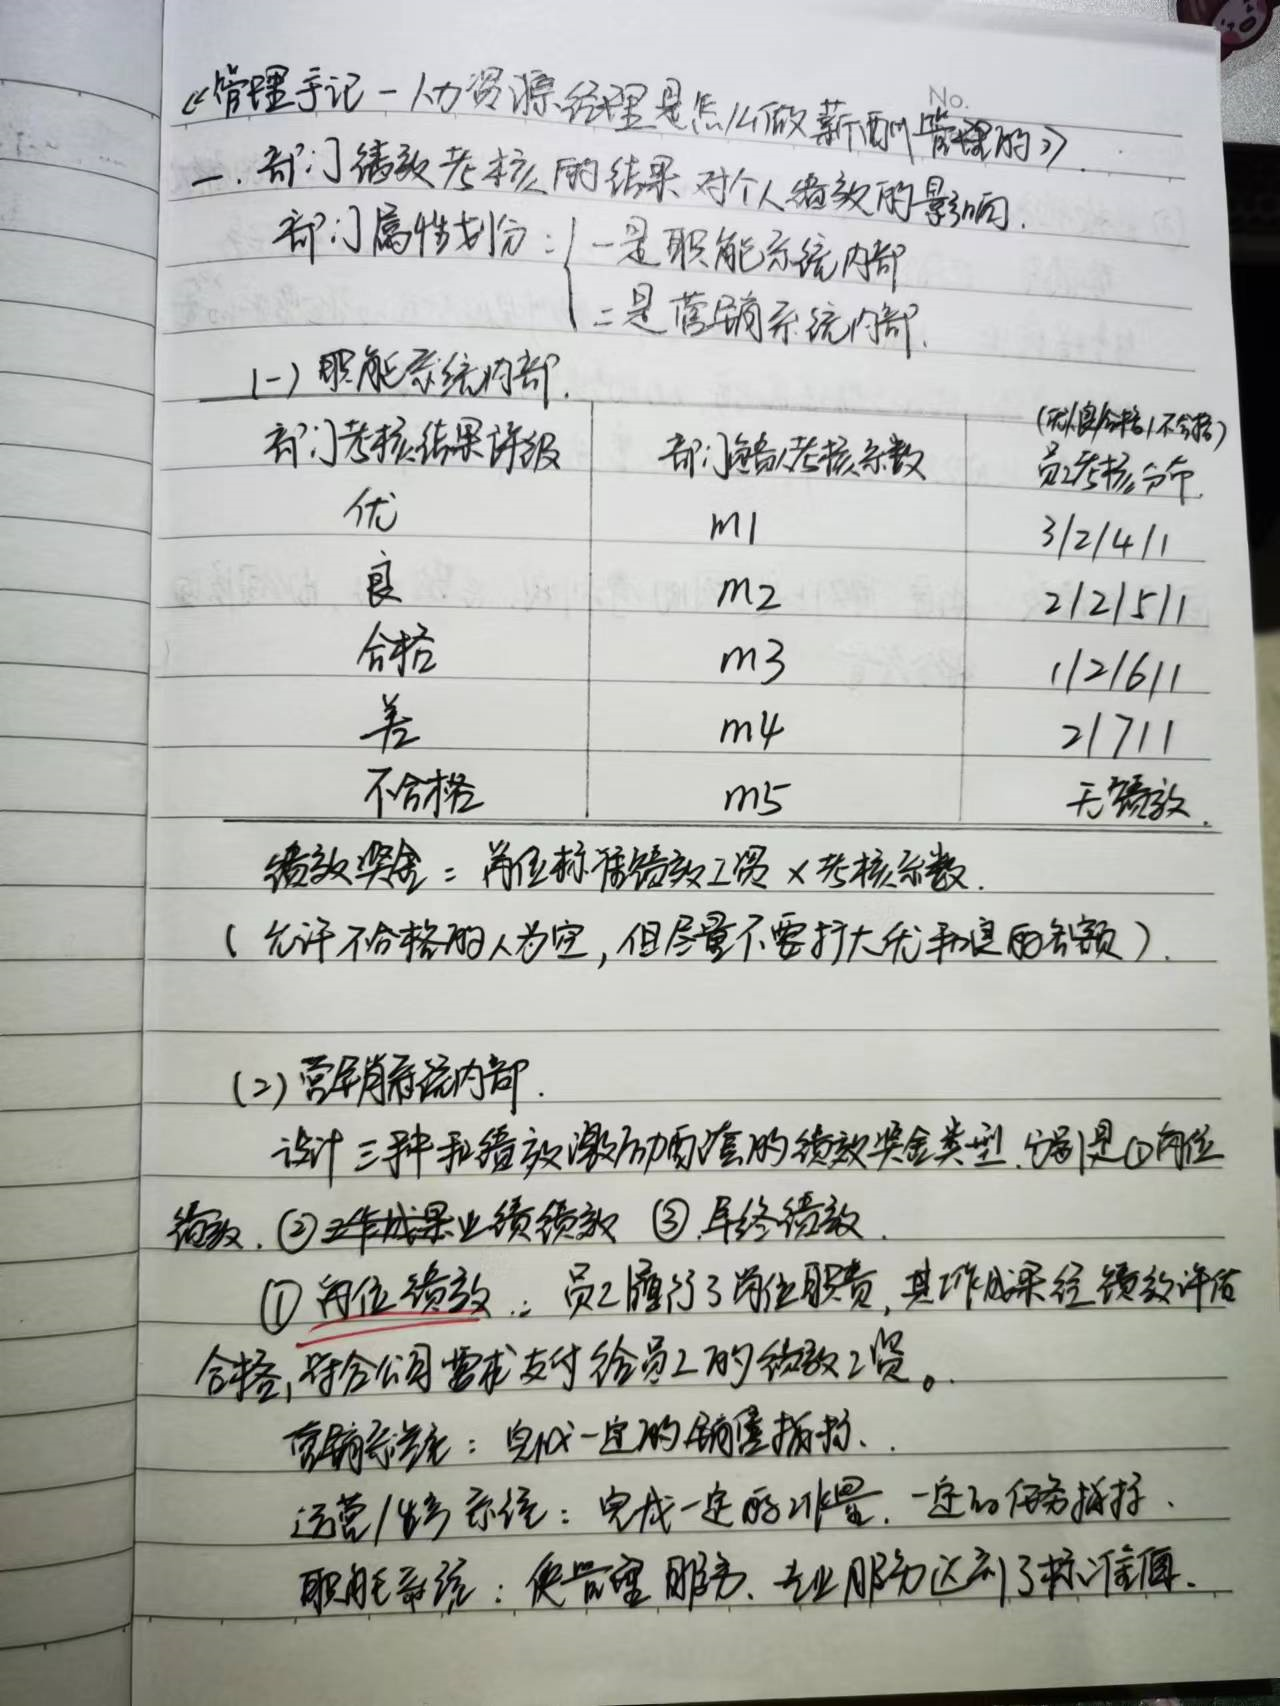 No.
《管理手记-人力资源经理是怎么做薪酬管理的》
一.部门绩效考核的结果对个人绩效的影响.
部门属性划分: 一是职能系统内部
二是营销系统内部.
(一)职能系统内部.
(优/良/合格/不合格)
部门考核结果评级 部门绩效考核系数 员工考核分布.
优 m1 3/2/4/1
良 m2 2/2/5/1
合格 m3 1/2/6/1
差 m4 2/7/1
不合格 m5 无绩效.
绩效奖金=岗位标准绩效工资×考核系数.
(允许不合格的人为空,但尽量不要扩大优和良的名额).
(二)营销系统内部.
设计三种和绩效激励配套的绩效奖金类型.分别是①岗位
绩效.②工作成果业绩绩效 ③.年终绩效.
①岗位绩效:员工履行了岗位职责,其工作成果经绩效评估
合格,符合公司要求支付给员工的绩效工资。
营销系统:完成一定的销售指标.
运营/生产系统:完成一定的工作量.一定的任务指标.
职能系统:使管理服务.专业服务达到了标准值.